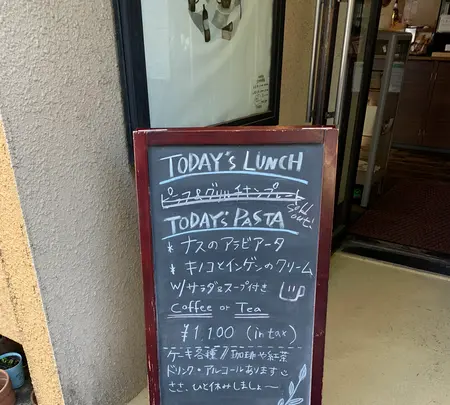 TODAY's LUNCH
Sold out!
TODAY's PASTA
* ナスのアラビアータ
* キノコとインゲンのクリーム
W/サラダ&スープ付き
Coffee or Tea
¥1.100 (in tax)
ケーキ各種 // 珈琲や紅茶
ドリンク・アルコールあります
ささ、ひと休みしましょ〜